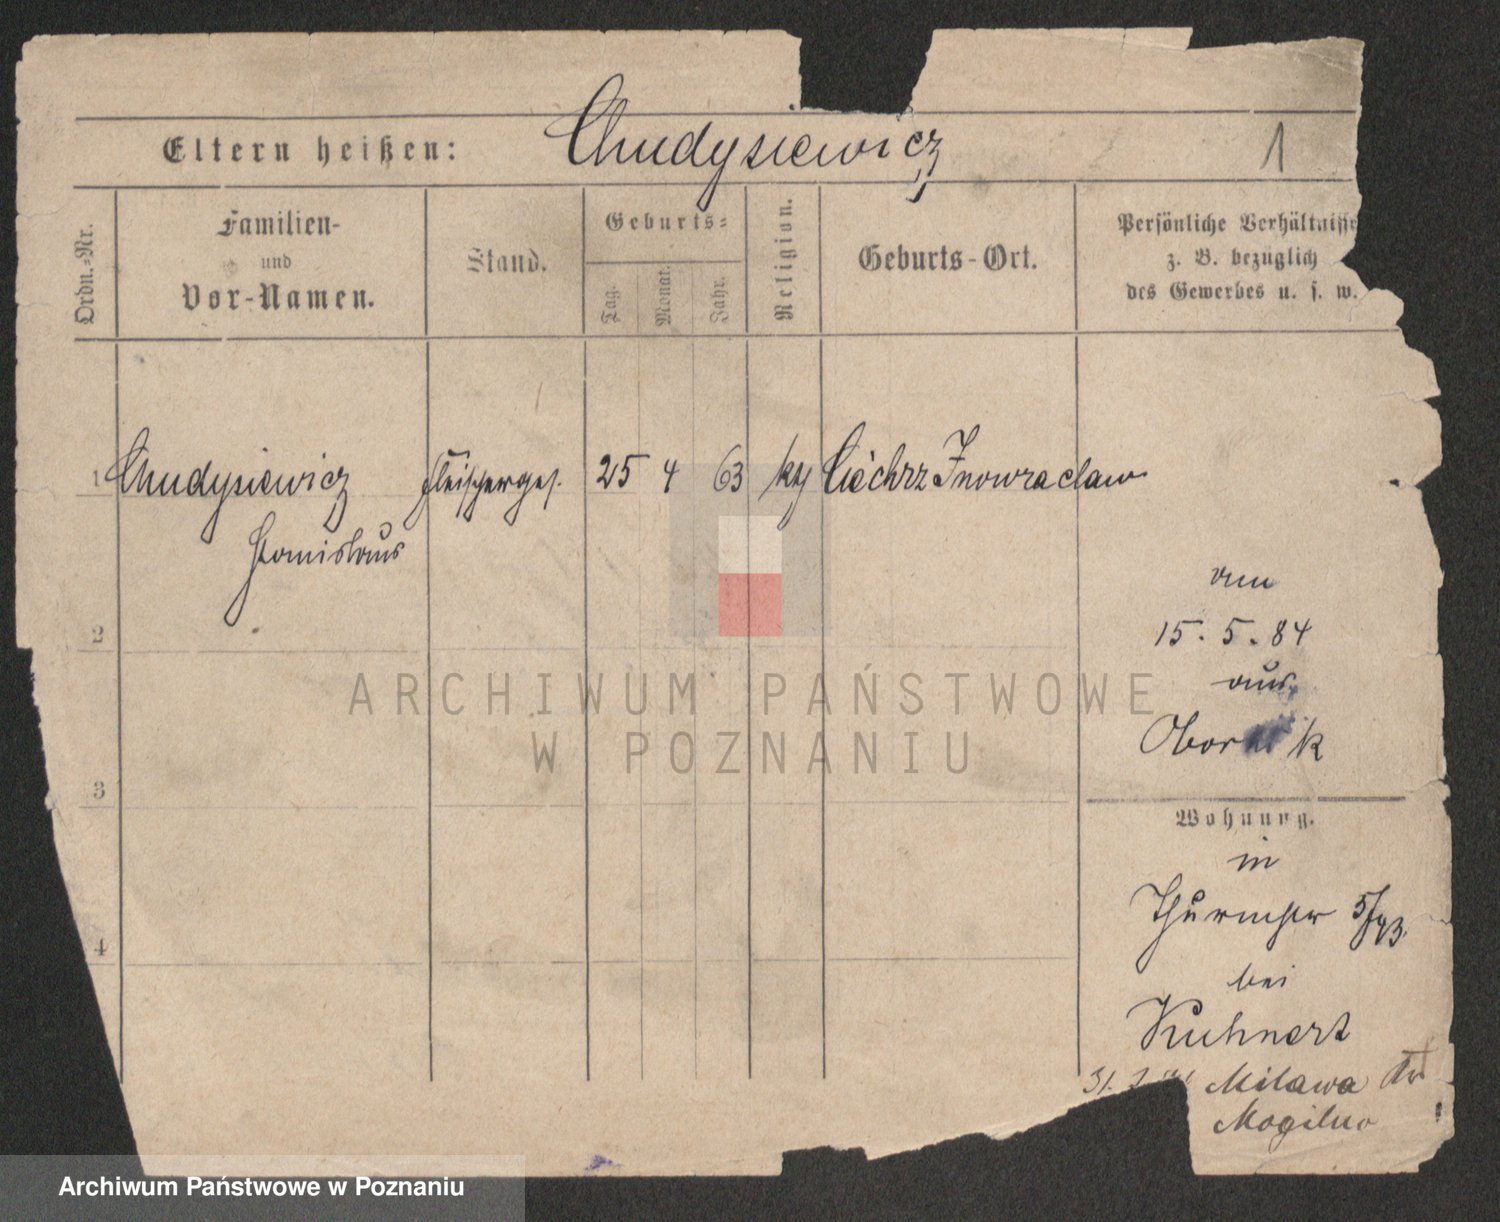 Eltern heißen: Chudysiewicz 1
Ordn.-Nr.
Familien-
und
Vor-Namen.
Stand.
Geburts-
Tag.
Monat.
Jahr.
Religion.
Geburts-Ort.
Persönliche Verhältnisse
z. B. bezüglich
des Gewerbes u. s. w.
1 Chudysiewicz Fleischerges. 25 4 63 Inowraclaw
Stanislaus
2
3
4
am
15. 5. 84
aus
Obornik
Wohnung.
in
bei
Kuhnert
Milawa
Mogilno
ARCHIWUM PAŃSTWOWE
W POZNANIU
Archiwum Państwowe w Poznaniu